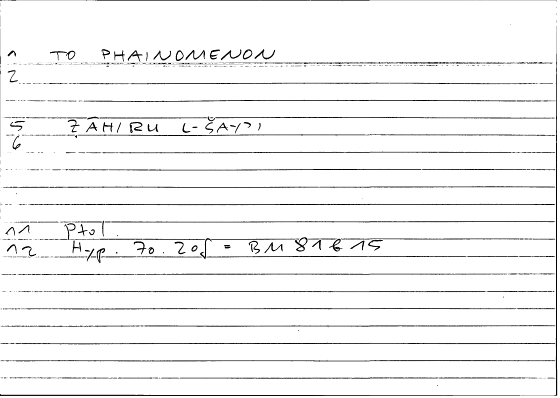 1 TO PHAINOMENON
2
5 ẒĀHIRU L-ŠAYʾI
6
11 Ptol.
12 Hyp. 70.20f = BM 81 b 15